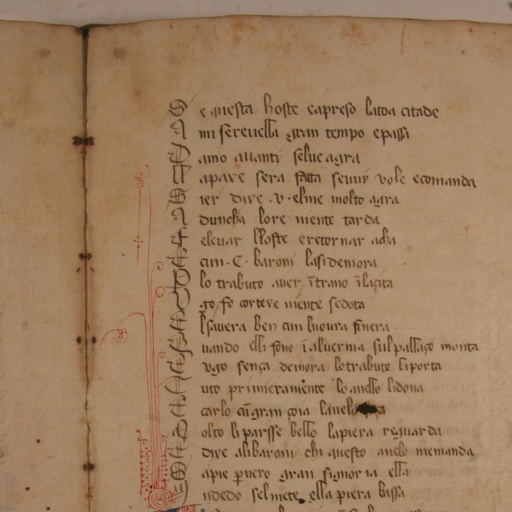 S e questa hoste e apreso la toa citade
A mi se revella gran tempo e passa
T amo avanti se lue agra
T apare sera fatta se vuy vole e comanda
S ier dire .v. elme molto agra
A duncha lore niente tarda
A elevar lloste e retornar acha
cun .C. baroni la si demora
lo trabuto aver i trano i la cita
ço fo corteve niente se dota
ben cun lu ovra finera
uando elli fono i alvernia sul pallaço monta
ugo sença demora lo trabuto li porta
uto primieramente lo anello li dona
carlo cu gran çoia
olto li parsse bello la piera reguarda
dire ali baroni chi questo anelo me manda
apie p vero gran signoria ella
ndedo sel niete ella piera bissa